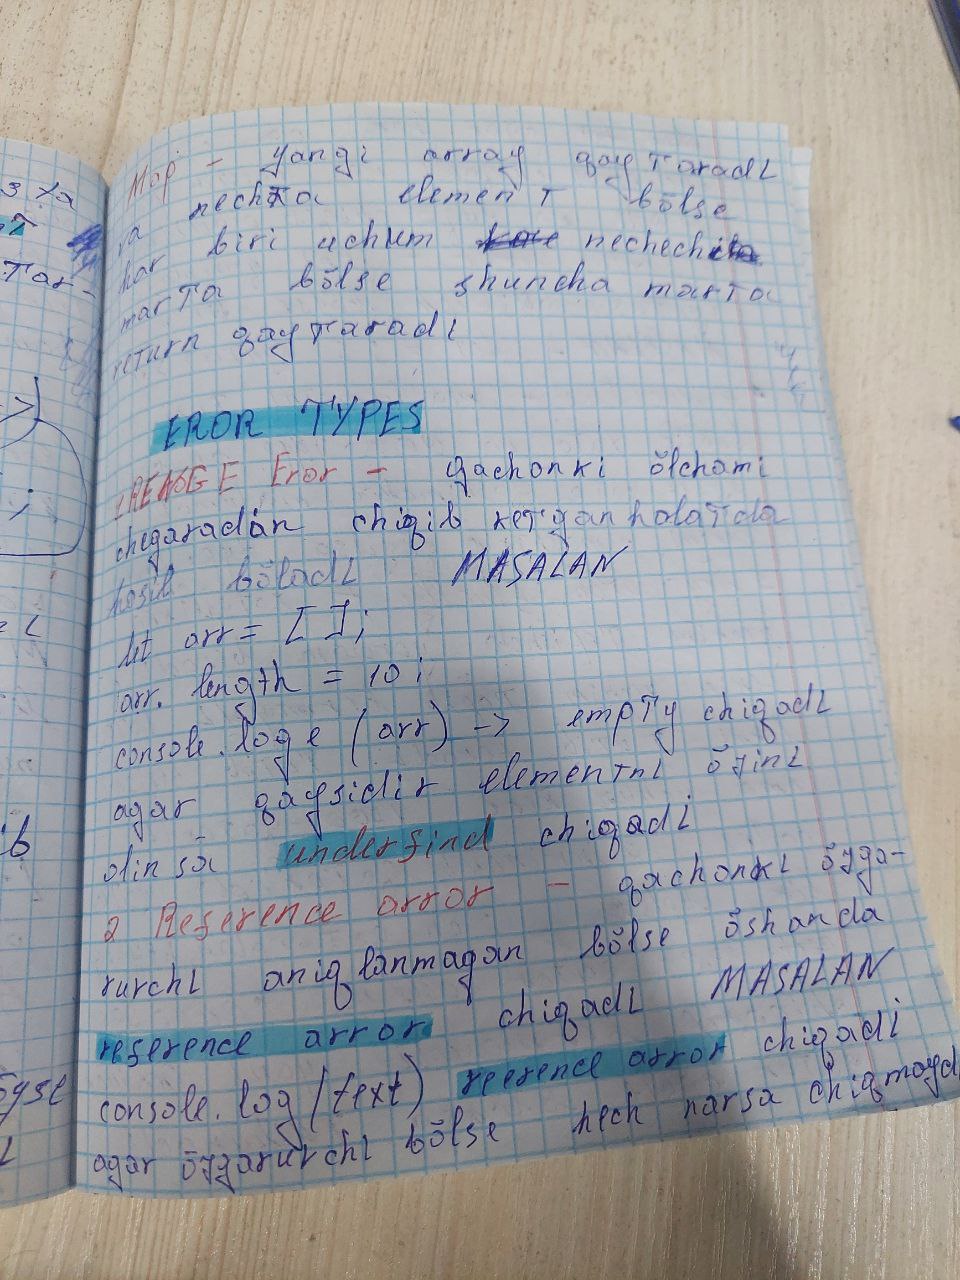 Map - yangi array qaytaradi
va nechta element bõlse
har biri uchum nechechta
marta bõlse shuncha marta
return qaytaradi
EROR TYPES
1 RENGE Eror - qachonki õlchami
chegaradan chiqib ketgan holatda
hosil bõladi MASALAN
let arr = [ ];
arr. length = 10;
console.loge (arr) -> empty chiqadi
agar qaysidir elementni õzini
olinsa underfind chiqadi
2 Reference arror - qachonki õzga-
rurchi aniqlanmagan bõlse õshanda
reference arror chiqadi MASALAN
console.log (text) reerence arror chiqadi
agar õzgarurchi bõlse hech narsa chiqmayd